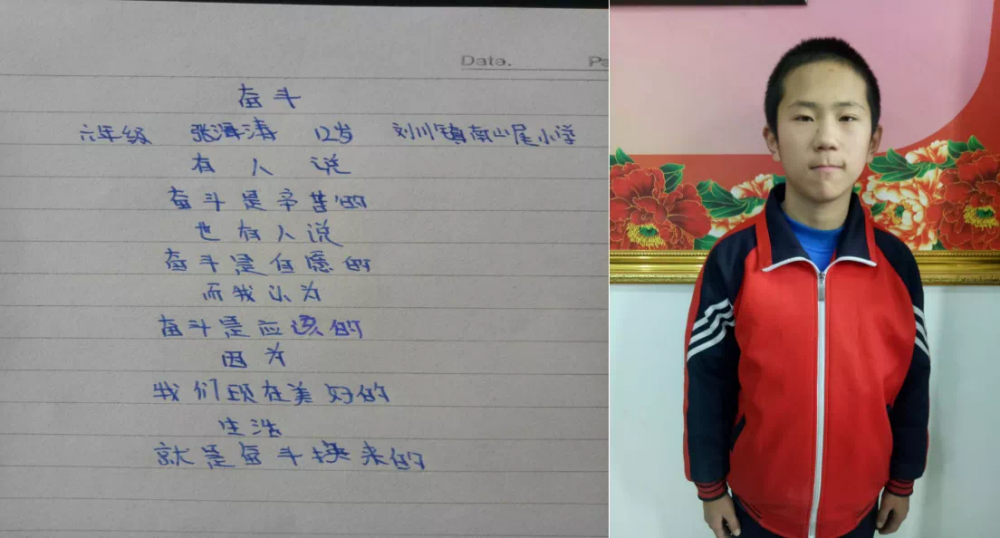 Date.
Pa
奋斗
六年级 张泽涛 12岁 刘川镇南山尾小学
有人说
奋斗是辛苦的
也有人说
奋斗是自愿的
而我认为
奋斗是应该的
因为
我们现在美好的
生活
就是奋斗换来的